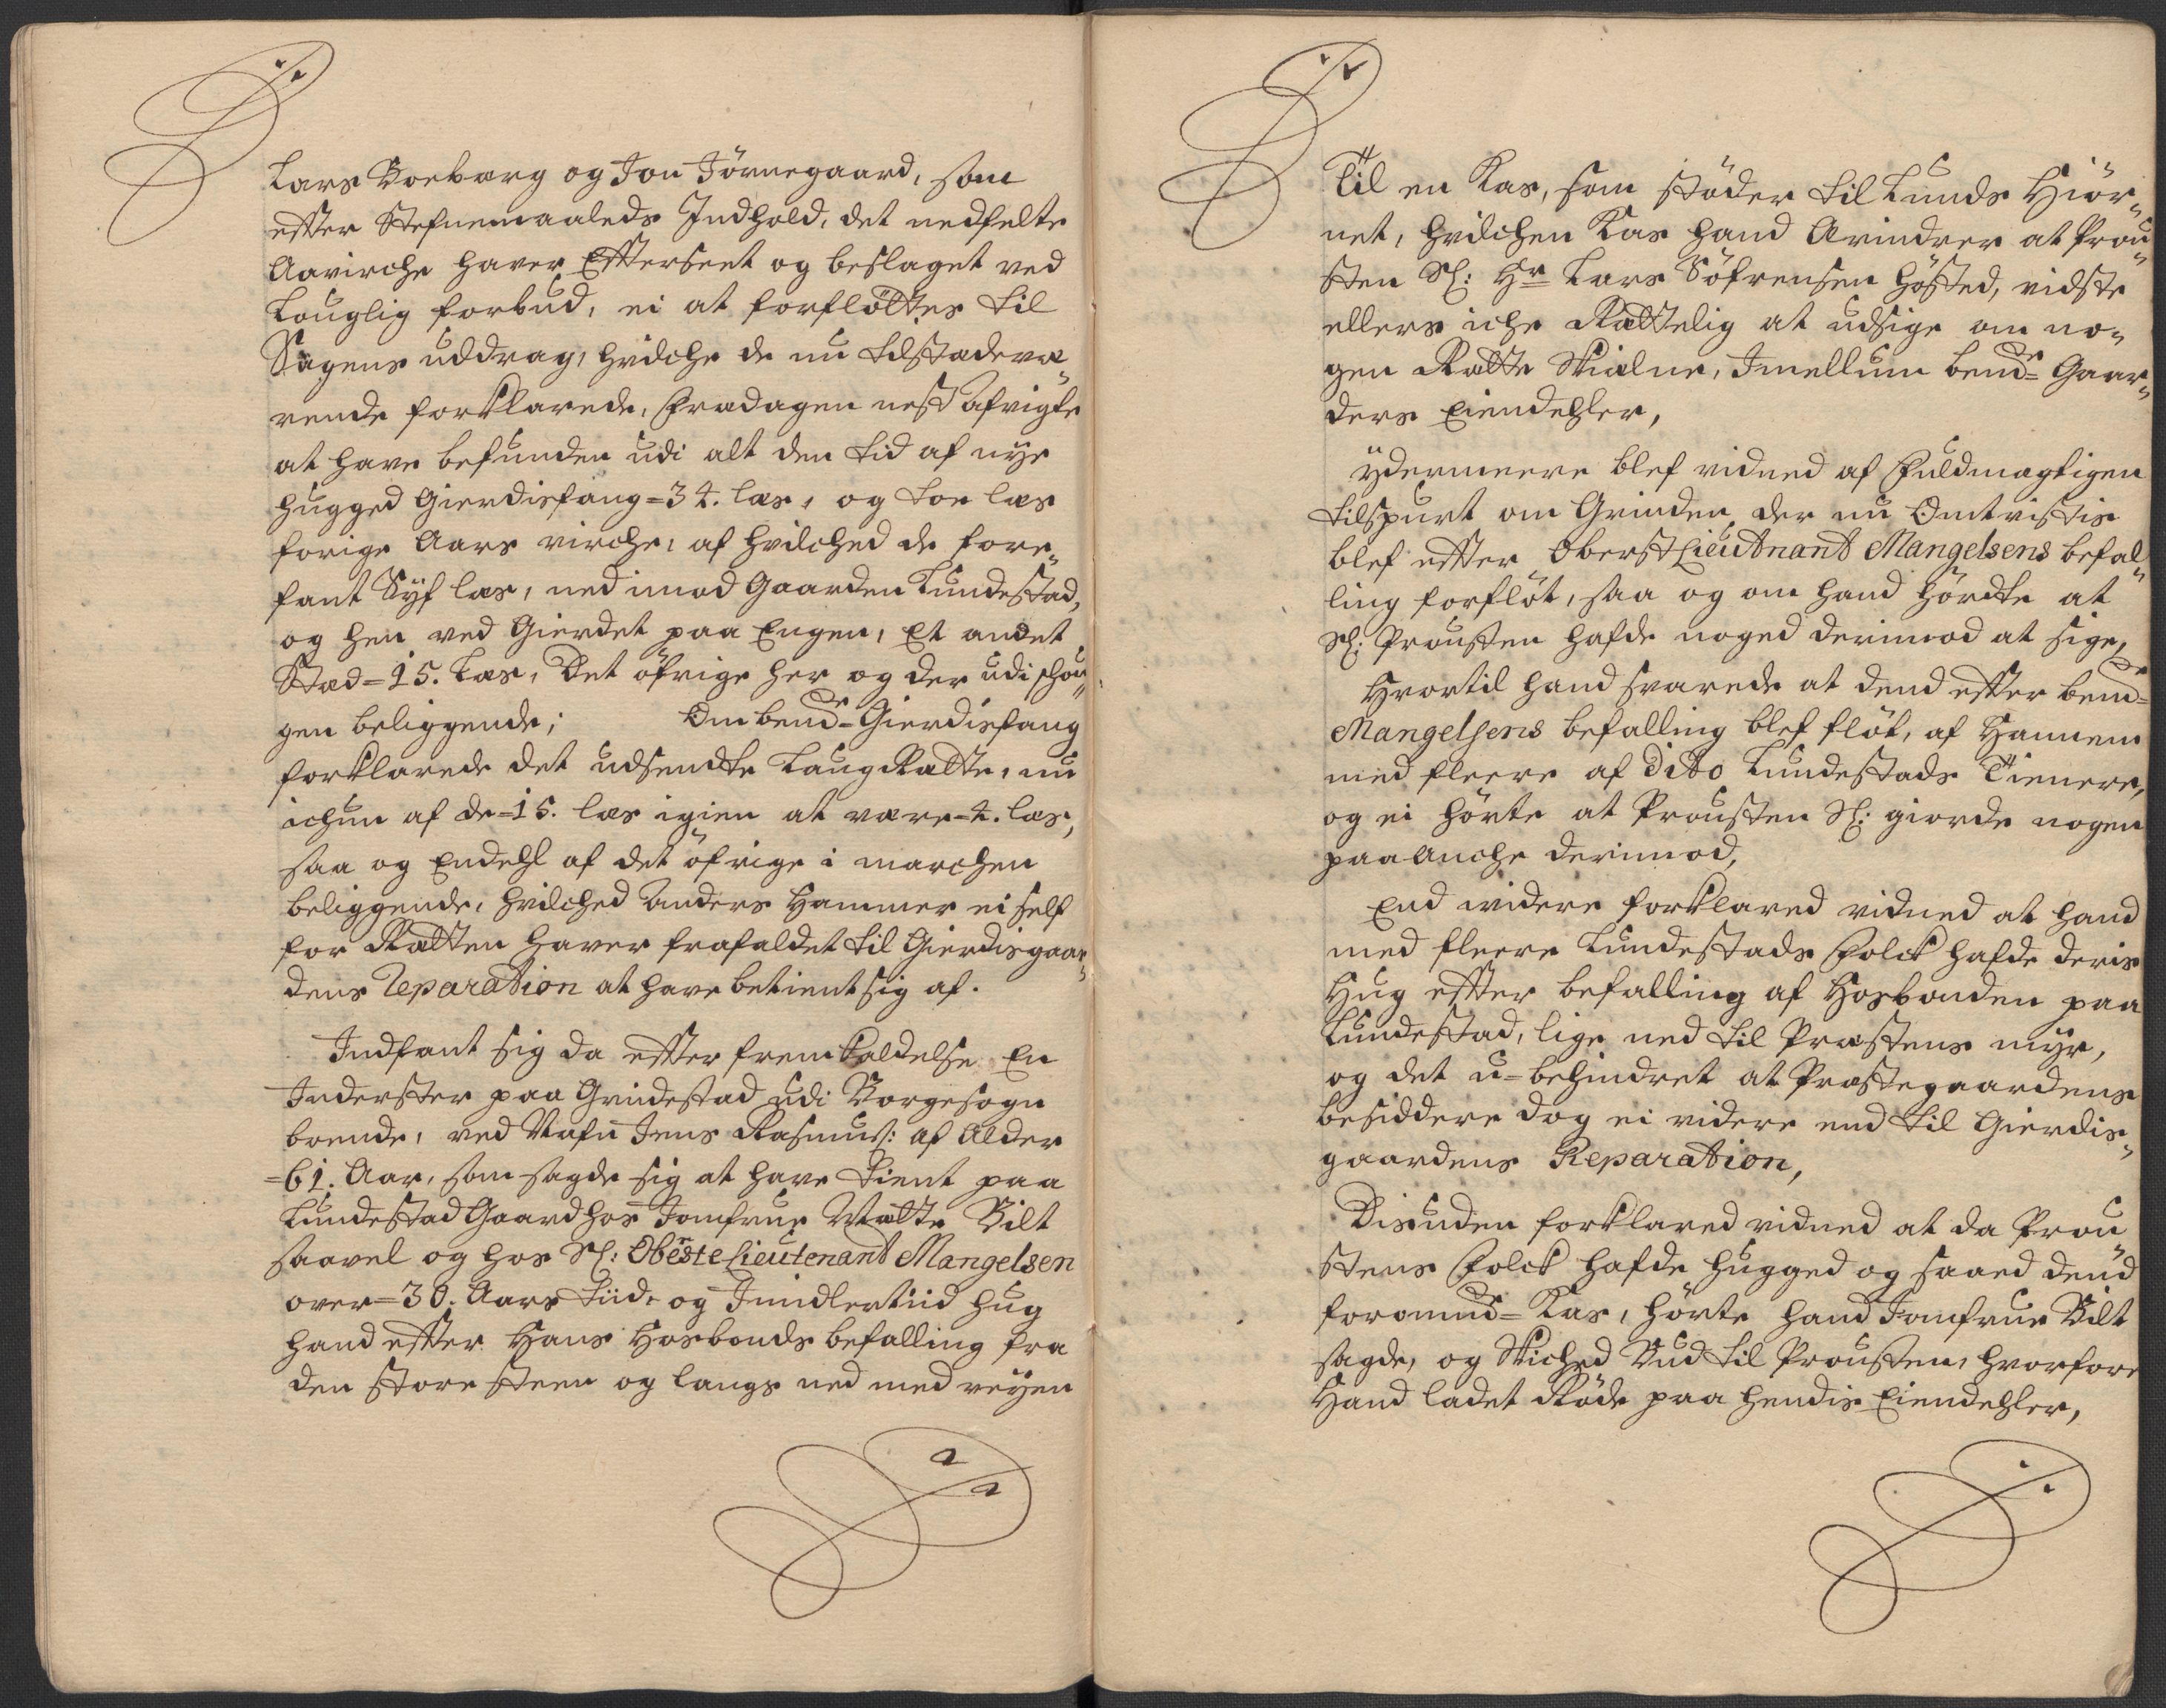 Lars Boebarg og Jon Jörnegaard, som
efter Stefnemaaleds Indhold, det nedfelte
Aavirche haver Efterseet og beslaget ved
Louglig forbud, ei at forflöttes til
Sagens uddrag, hvilche de nu tilstædevæ„
rende forklarede, Fredagen nest Afvigte
at have befunden udi alt den tid af nye
hugged Gierdisfang=34. læs, og toe læs
forige Aars virche, af hvilched de fore„
fant Syf læs, ned imod Gaarden Lundestad,
og hen ved Gierdet paa Engen, Et andet
Stæd=15. Læs, Det öfrige her og der udi schou„
gen beliggende; Om bemd= Gierdisfang
forklarede det udsendte LaugRætte, nu
ichun af de=15. læs igien at være=4. læs,
saa og Endehl af det öfrige i marchen
beliggende, hvilched Anders Hammer ei self
for Rætten haver frafaldet til Gierdisgaar„
dens Reparation at have betient sig af.
Indfant sig da efter fremkaldelse En
Inderster paa Grindestad udi Borgesogn
boende, ved Nafn Jens Rasmuss: af Alder
=61. Aar, som sagde sig at have tient paa
Lundestad Gaard hos Jomfrue Mætte Bilt
saavel og hos Sl: ObersteLieutenant Mangelsen
over=30. Aars tiid, og Imidlertiid hug
hand efter Hans Hosbonds befalling fra
den store steen og langs ned med veyen
Til en Kas, som stöder til Lunds Hiör„
net, hvilchen Kas hand Erindrer at Prou„
sten Sl: Hr Lars Söfrensen Hösted, vidste
ellers iche Rættelig at udsige om no„
gen Rætte Skielne, Imellum bemd= Gaar„
ders Eiendehler,
ÿdermeere blef vidned af Fuldmægtigen
tilspurt om Grinden der nu Omtvistis
blef efter OberstLieutnant Mangelsens befal„
ling forflöt, saa og om hand hördte at
Sl: Prousten hafde noged derimod at sige,
Hvortil hand svarede at dend efter bemd=
Mangelsens befalling blef flöt, af Hannem
med fleere af dito Lundestads Tienere,
og ei hörte at Prousten Sl: giorde nogen
paaanche derimod,
End widere forklared vidned at hand
med fleere Lundestads Folck hafde deris
Hug efter befalling af Hosbonden paa
Lundestad, lige ned til Præstens myr,
og det u=behindret at Præstegaardens
besiddere dog ei videre end til Gierdis„
gaardens Reparation,
Disuden forklared vidned at da Prou„
stens Folck hafde hugged og saaed dend
forommd= Kas, hörte hand Jomfrue Bilt
sagde, og skiched Bud til Prousten, hvorfore
Hand ladet Röde paa hendis Eiendehler,